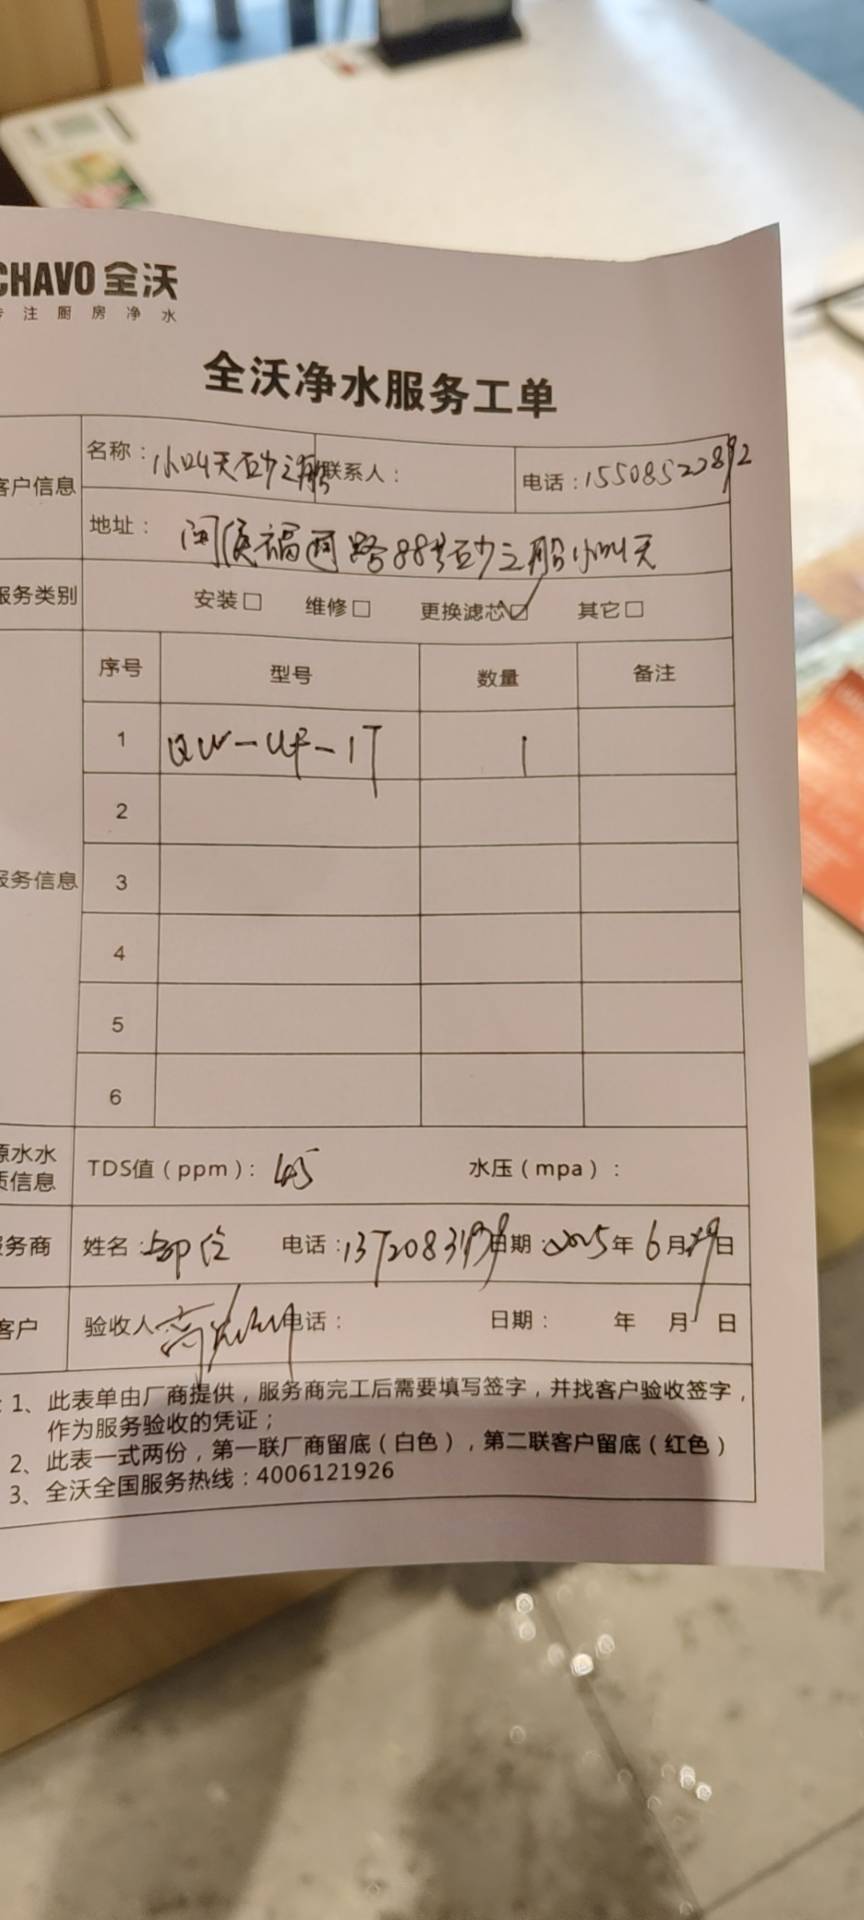 CHAVO 全沃
专注厨房净水
全沃净水服务工单
客户信息
名称：小叫天砂之船 联系人： 电话：15508522892
地址：闽侯福 路88号砂之船小叫天
服务类别 安装□ 维修□ 更换滤芯☑ 其它□
序号 型号 数量 备注
1 QW-UF-1T 1
2
服务信息 3
4
5
6
源水水质信息 TDS值（ppm）：45 水压（mpa）：
服务商 姓名： 电话： 日期：2025年6月 日
客户 验收人 电话： 日期： 年 月 日
：1、此表单由厂商提供，服务商完工后需要填写签字，并找客户验收签字，
作为服务验收的凭证；
2、此表一式两份，第一联厂商留底（白色），第二联客户留底（红色）
3、全沃全国服务热线：4006121926